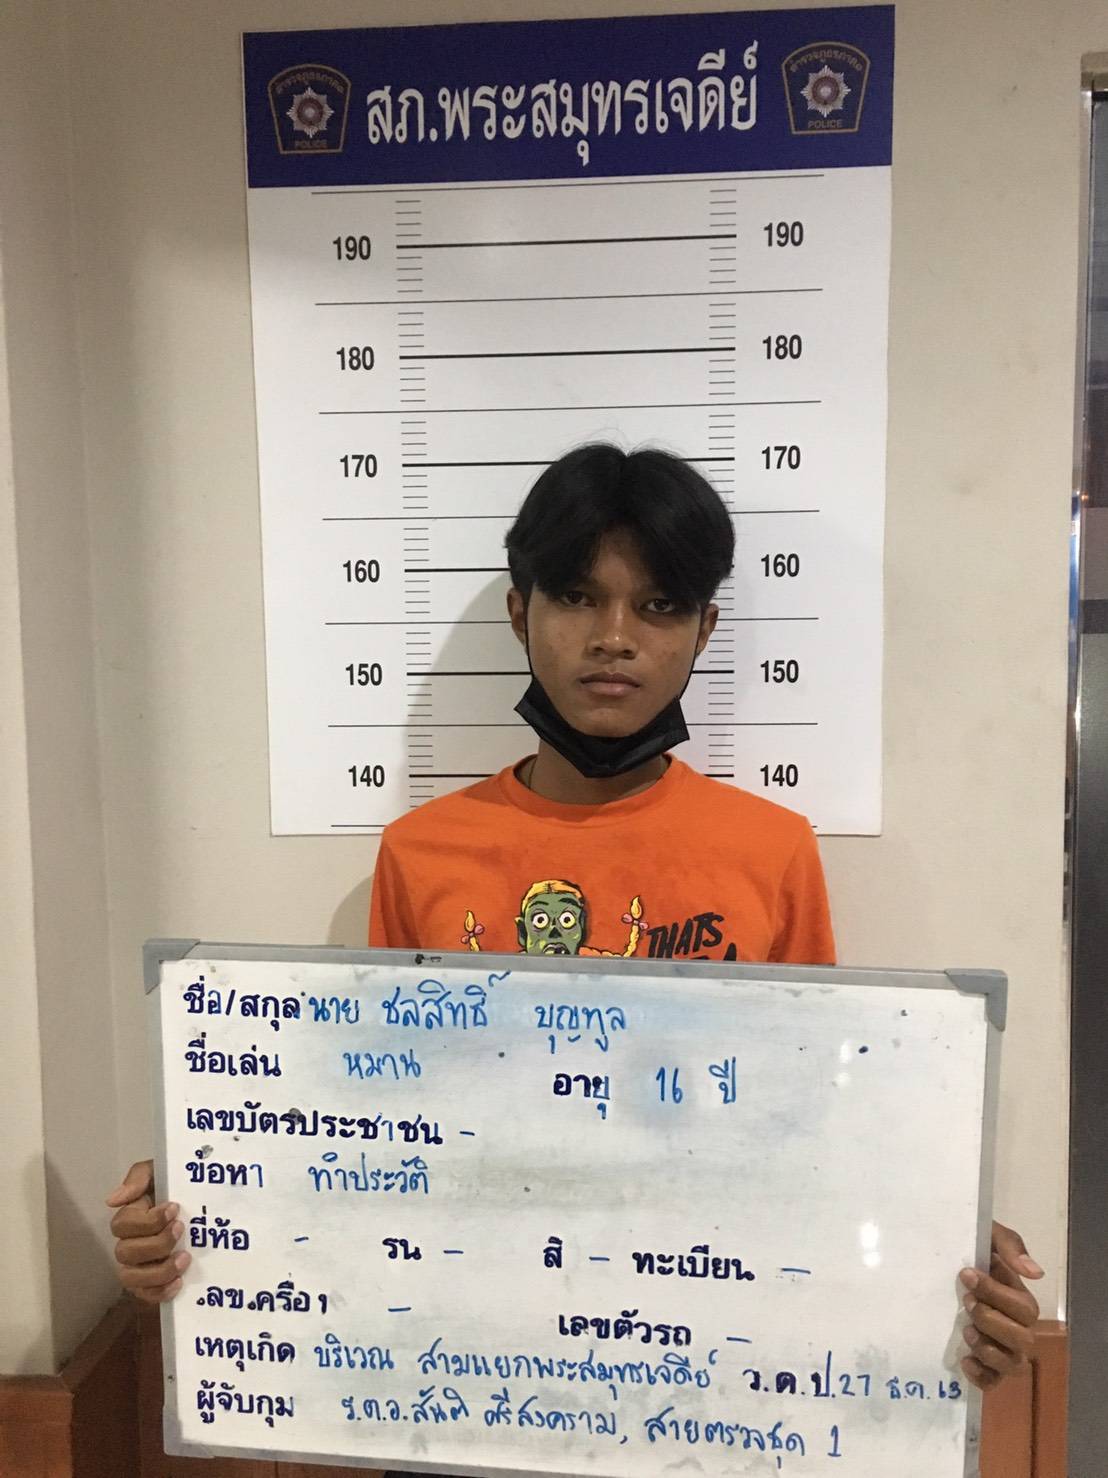 สภ.พระสมุทรเจดีย์
POLICE
POLICE
190 190
180 180
170 170
160 160
150 150
140 140
THATS
ชื่อ/สกุล นาย ชลสิทธิ์ บุญทูล
ชื่อเล่น หมาน อายุ 16 ปี
เลขบัตรประชาชน -
ข้อหา ทำประวัติ
ยี่ห้อ - รุ่น - สี - ทะเบียน -
เลขเครื่อง - เลขตัวรถ -
เหตุเกิด บริเวณ สามแยกพระสมุทรเจดีย์ ว.ด.ป.27 ธ.ค. 63
ผู้จับกุม ร.ต.อ.สันติ ศรีสงคราม, สายตรวจชุด 1